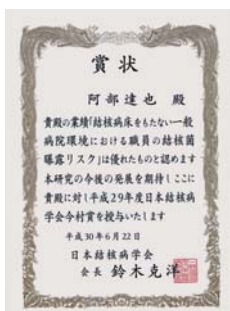 賞状
阿部達也 殿
貴殿の業績「結核病床をもたない一般
病院環境における職員の結核菌
曝露リスク」は優れたものと認めます
本研究の今後の発展を期待しここに
貴殿に対し平成29年度日本結核病
学会今村賞を授与いたします
平成30年6月22日
日本結核病学会
会長 鈴木克洋